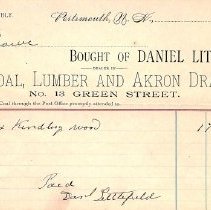 Portsmouth, N. H.,
BOUGHT OF DANIEL LIT
DEALER IN
OAL, LUMBER AND AKRON DRA
No. 13 GREEN STREET.
Coal through the Post Office promptly attended to.
Kindling wood 1
Paid
Danl Littlefield